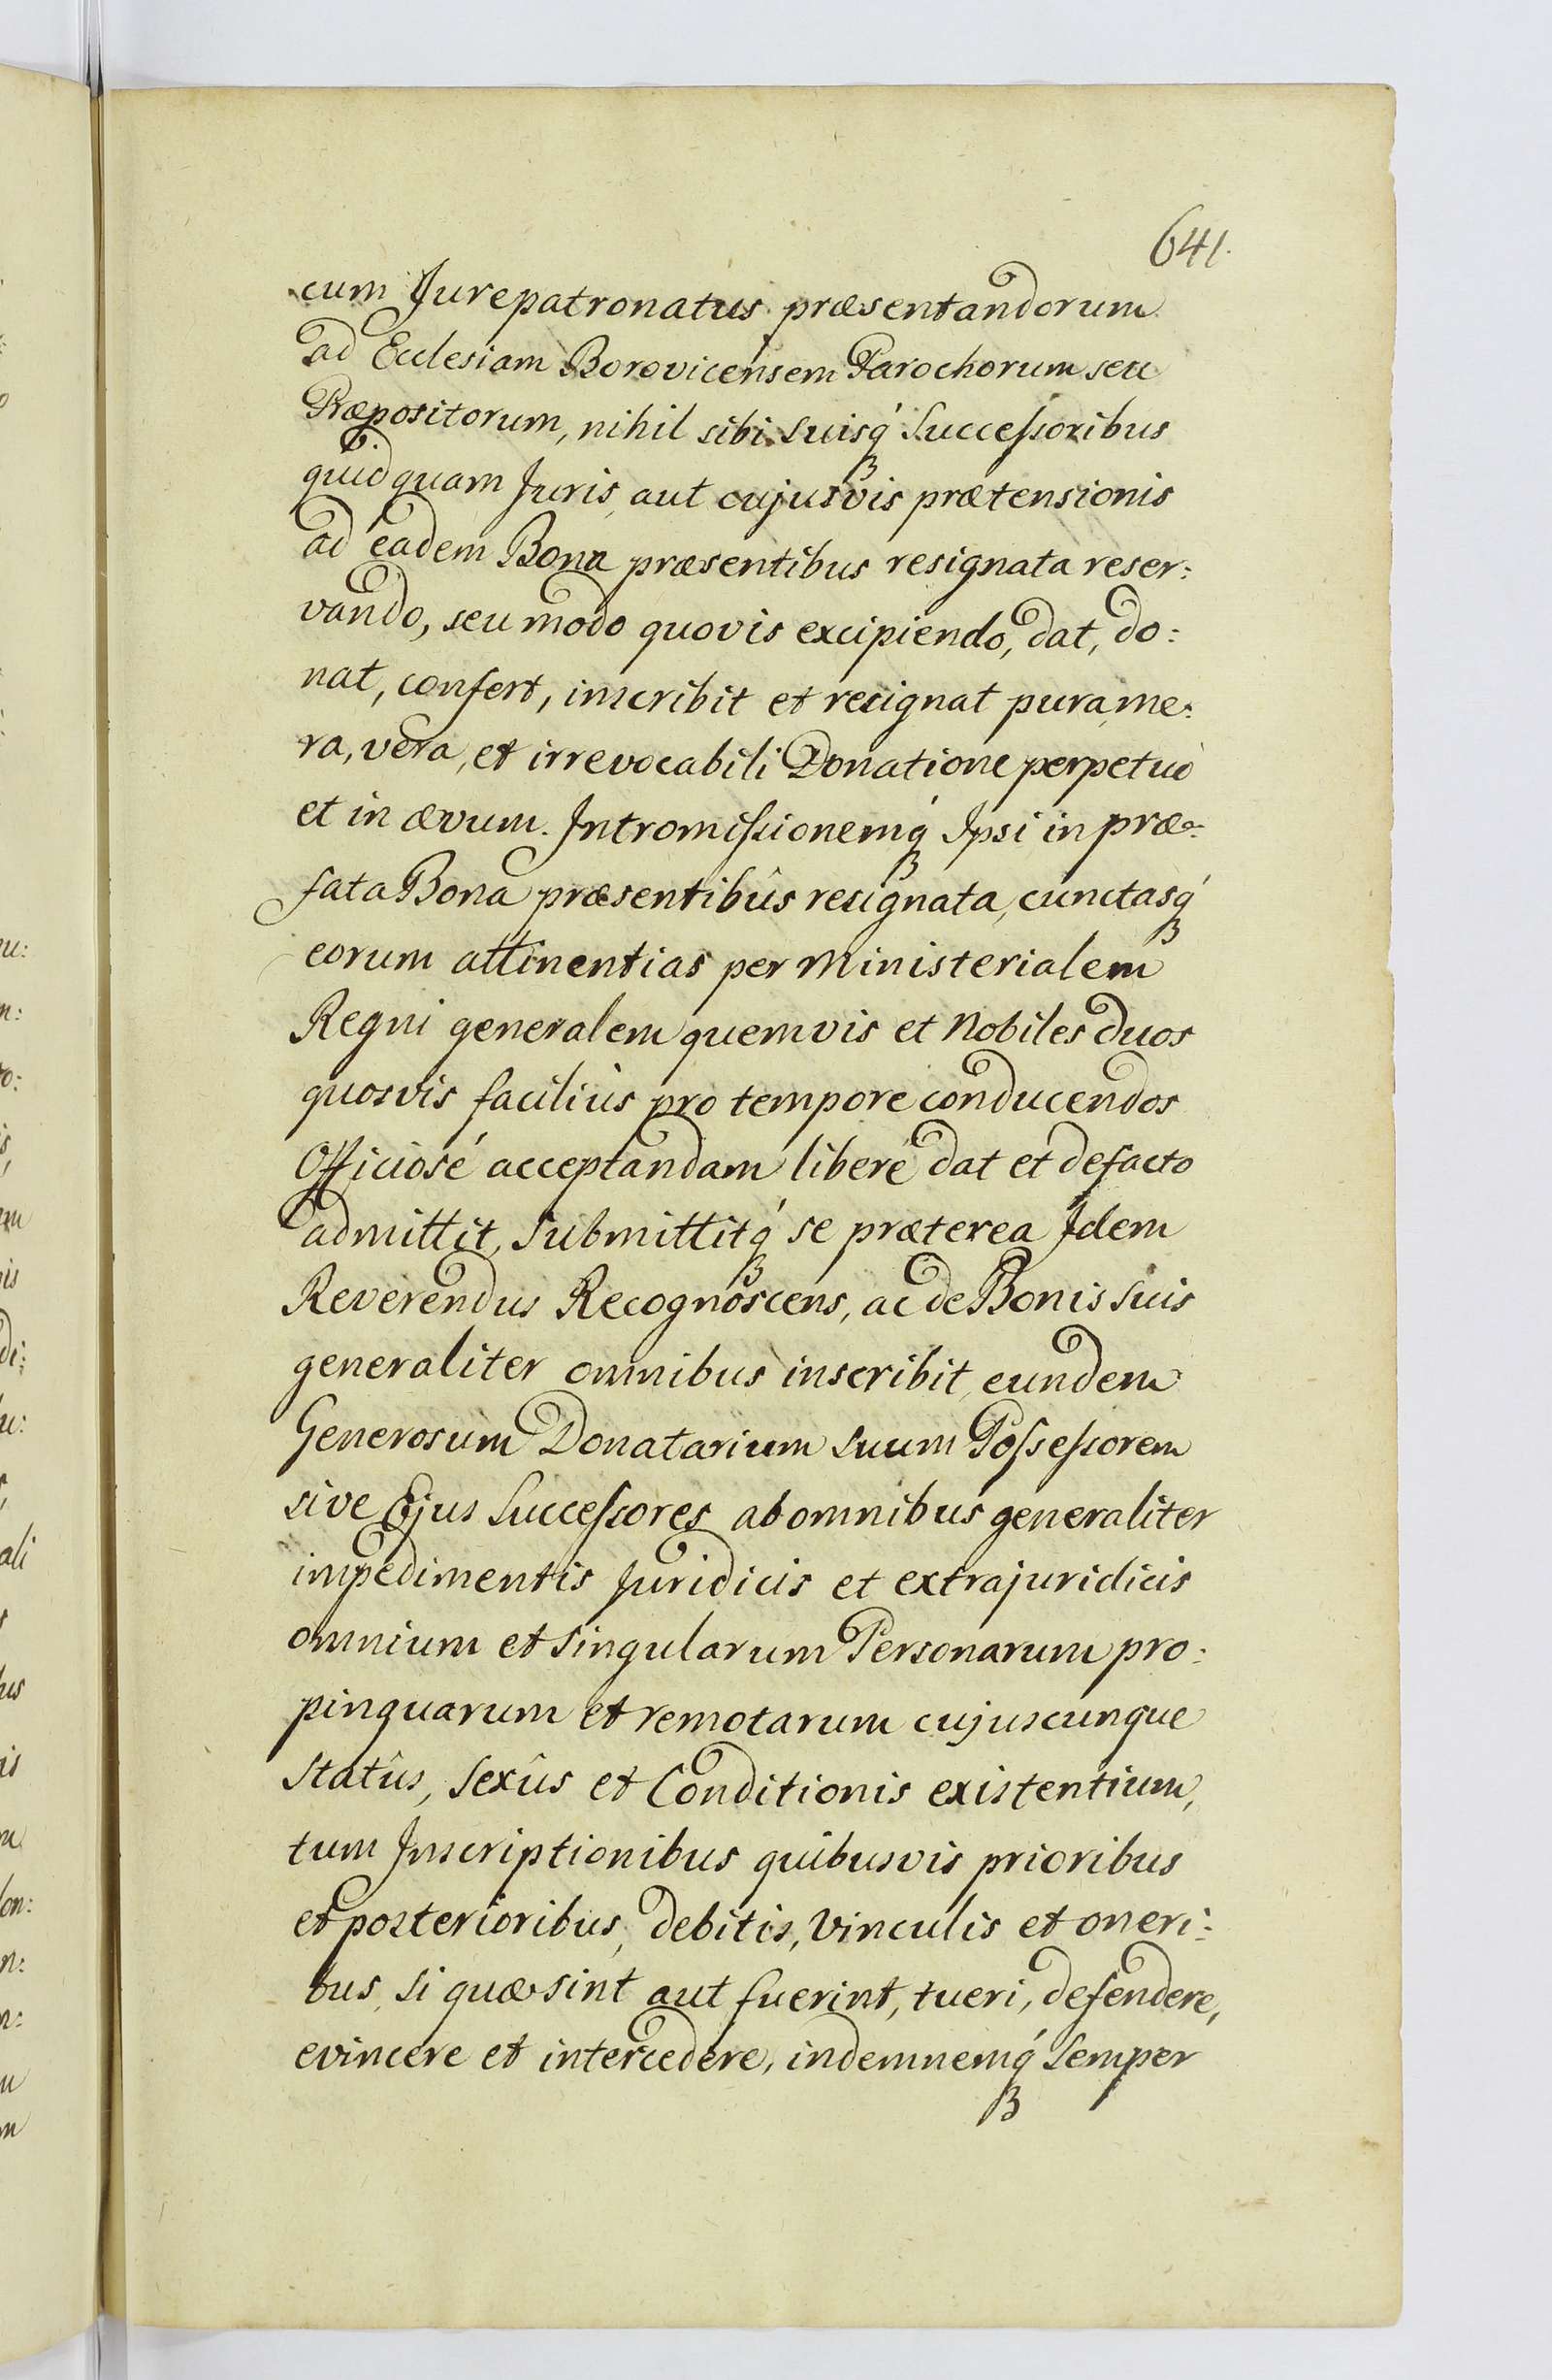 641.
cum Jurepatronatus præsentandorum
ad Ecclesiam Borovicensem Parochorum seu
Præpositorum, nihil sibi suisq́ Successoribus
quidquam Juris, aut cujusvis prætensionis
ad eadem Bona præsentibus resignata reser:
vando, seu modo quovis excipiendo, dat, do:
nat, confert, inscribit et resignat pura, me:
ra, vera, et irrevocabili Donatione perpetuò
et in ævum. Intromissionemq́ Ipsi in præ:
fata Bona præsentibûs resignata, cunctasq́
eorum attinentias per Ministerialem
Regni generalem quemvis et Nobiles duos
quosvis facilius pro tempore conducendos
Officiosé acceptandam liberé dat et defacto
admittit, Submittitq́ se præterea Idem
Reverendus Recognoscens, ac de Bonis suis
generaliter omnibus inscribit, eundem
Generosum Donatarium suum Possessorem
sive Ejus Successores ab omnibus generaliter
impedimentis Juridicis et extrajuridicis
omnium et singularum Personarum pro:
pinquarum et remotarum cujuscunque
Statûs, Sexûs et Conditionis existentium,
tum Inscriptionibus quibusvis prioribus
et posterioribus, debitis, vinculis et oneri:
bus, si quæ sint aut fuerint, tueri, defendere,
evincere et intercedere, indemnemq́ Semper